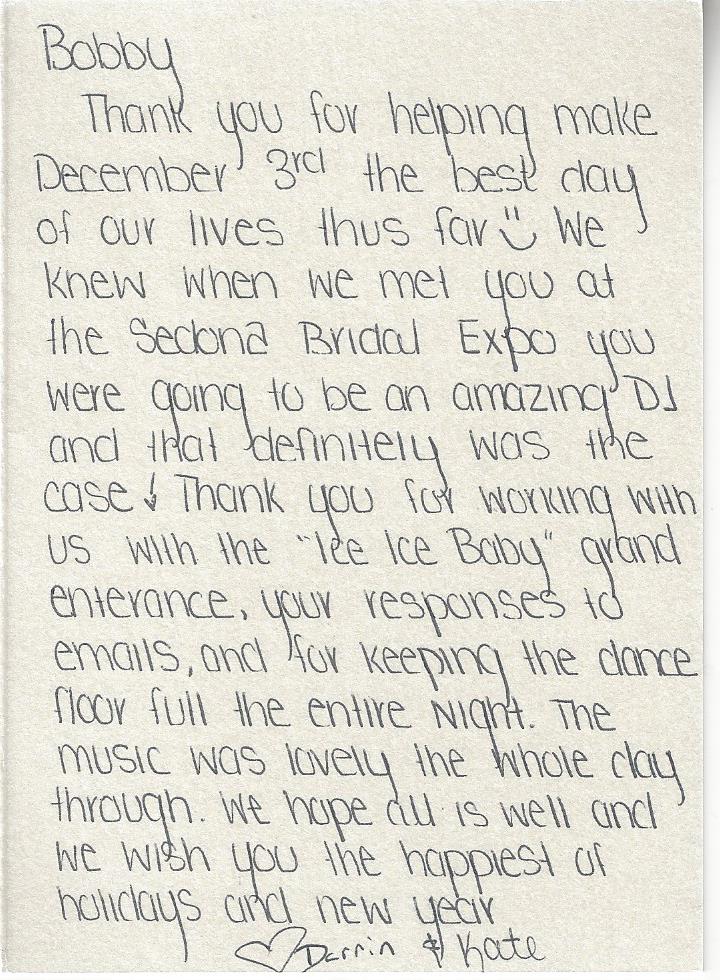 Bobby
Thank you for helping make
December 3rd the best day
of our lives thus far We
knew when we met you at
the Sedona Bridal Expo you
were going to be an amazing DJ
and that definitely was the
case! Thank you for working with
us with the "Ice Ice Baby" grand
enterance, your responses to
emails, and for keeping the dance
floor full the entire Night. The
music was lovely the whole day
through. We hope all is well and
we wish you the happiest of
holidays and new year
♡ Darrin & Kate